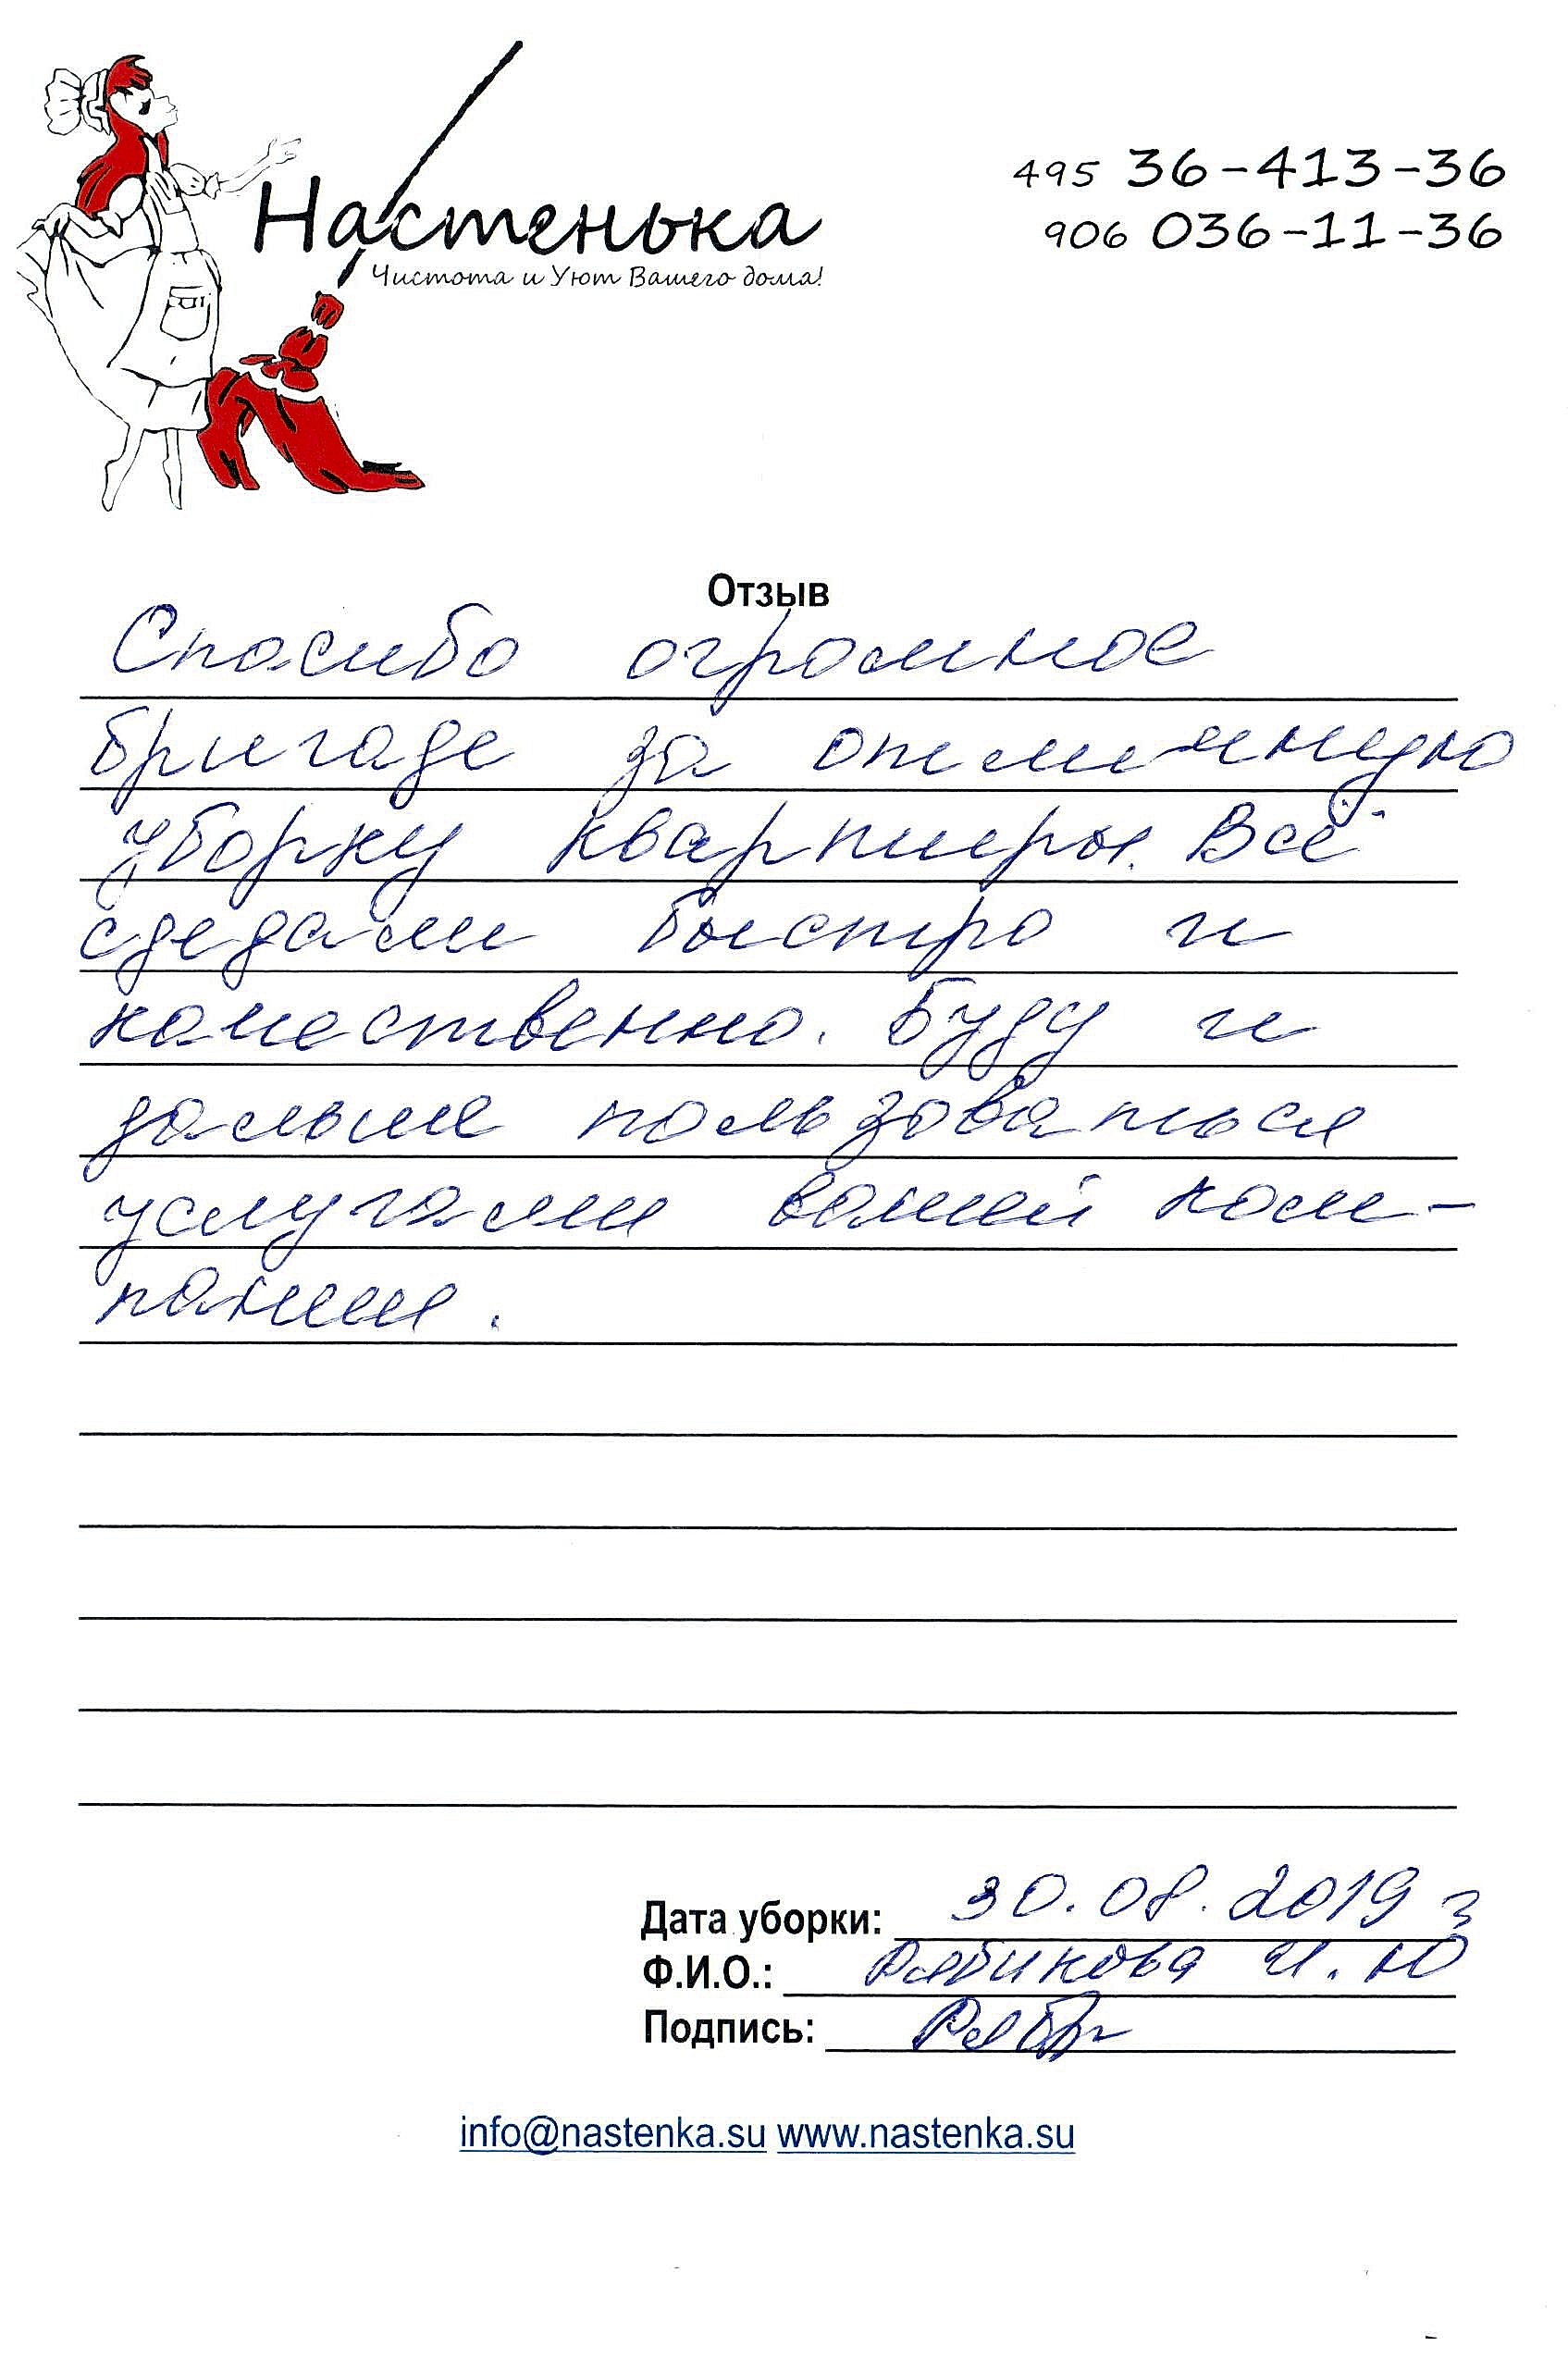 Настенька
Чистота и Уют Вашего дома!
495 36-413-36
906 036-11-36
Отзыв
Спасибо огромное
бригаде за отличную
уборку квартиры. Всё
сделали быстро и
качественно. Буду и
дальше пользоваться
услугами вашей ком-
пании.
Дата уборки: 30.08.2019 г
Ф.И.О.: Рябикова И.Ю
Подпись:
info@nastenka.su www.nastenka.su